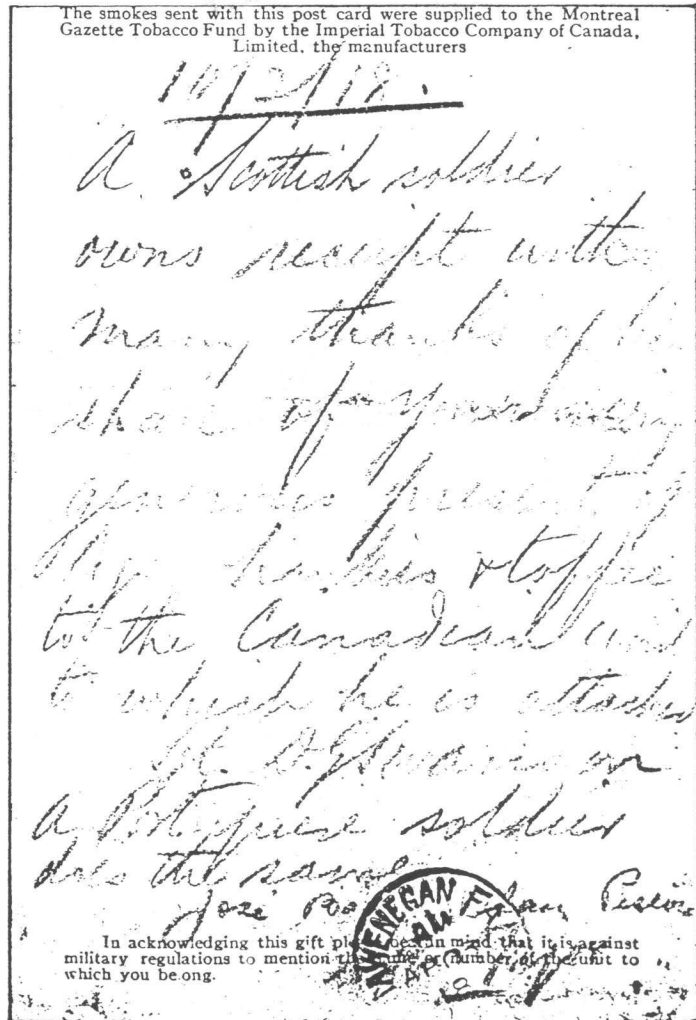 The smokes sent with this post card were supplied to the Montreal
Gazette Tobacco Fund by the Imperial Tobacco Company of Canada,
Limited, the manufacturers
10/2/18.
A Scottish soldier
owns receipt with
many thanks of his
share of your very
generous present of
hankies & toffee
to the Canadian unit
to which he is attached
a Portuguese soldier
does the same
José
In acknowledging this gift please bear in mind that it is against
military regulations to mention the name or number of the unit to
which you be ong.
WHENEGAN
AM
AP